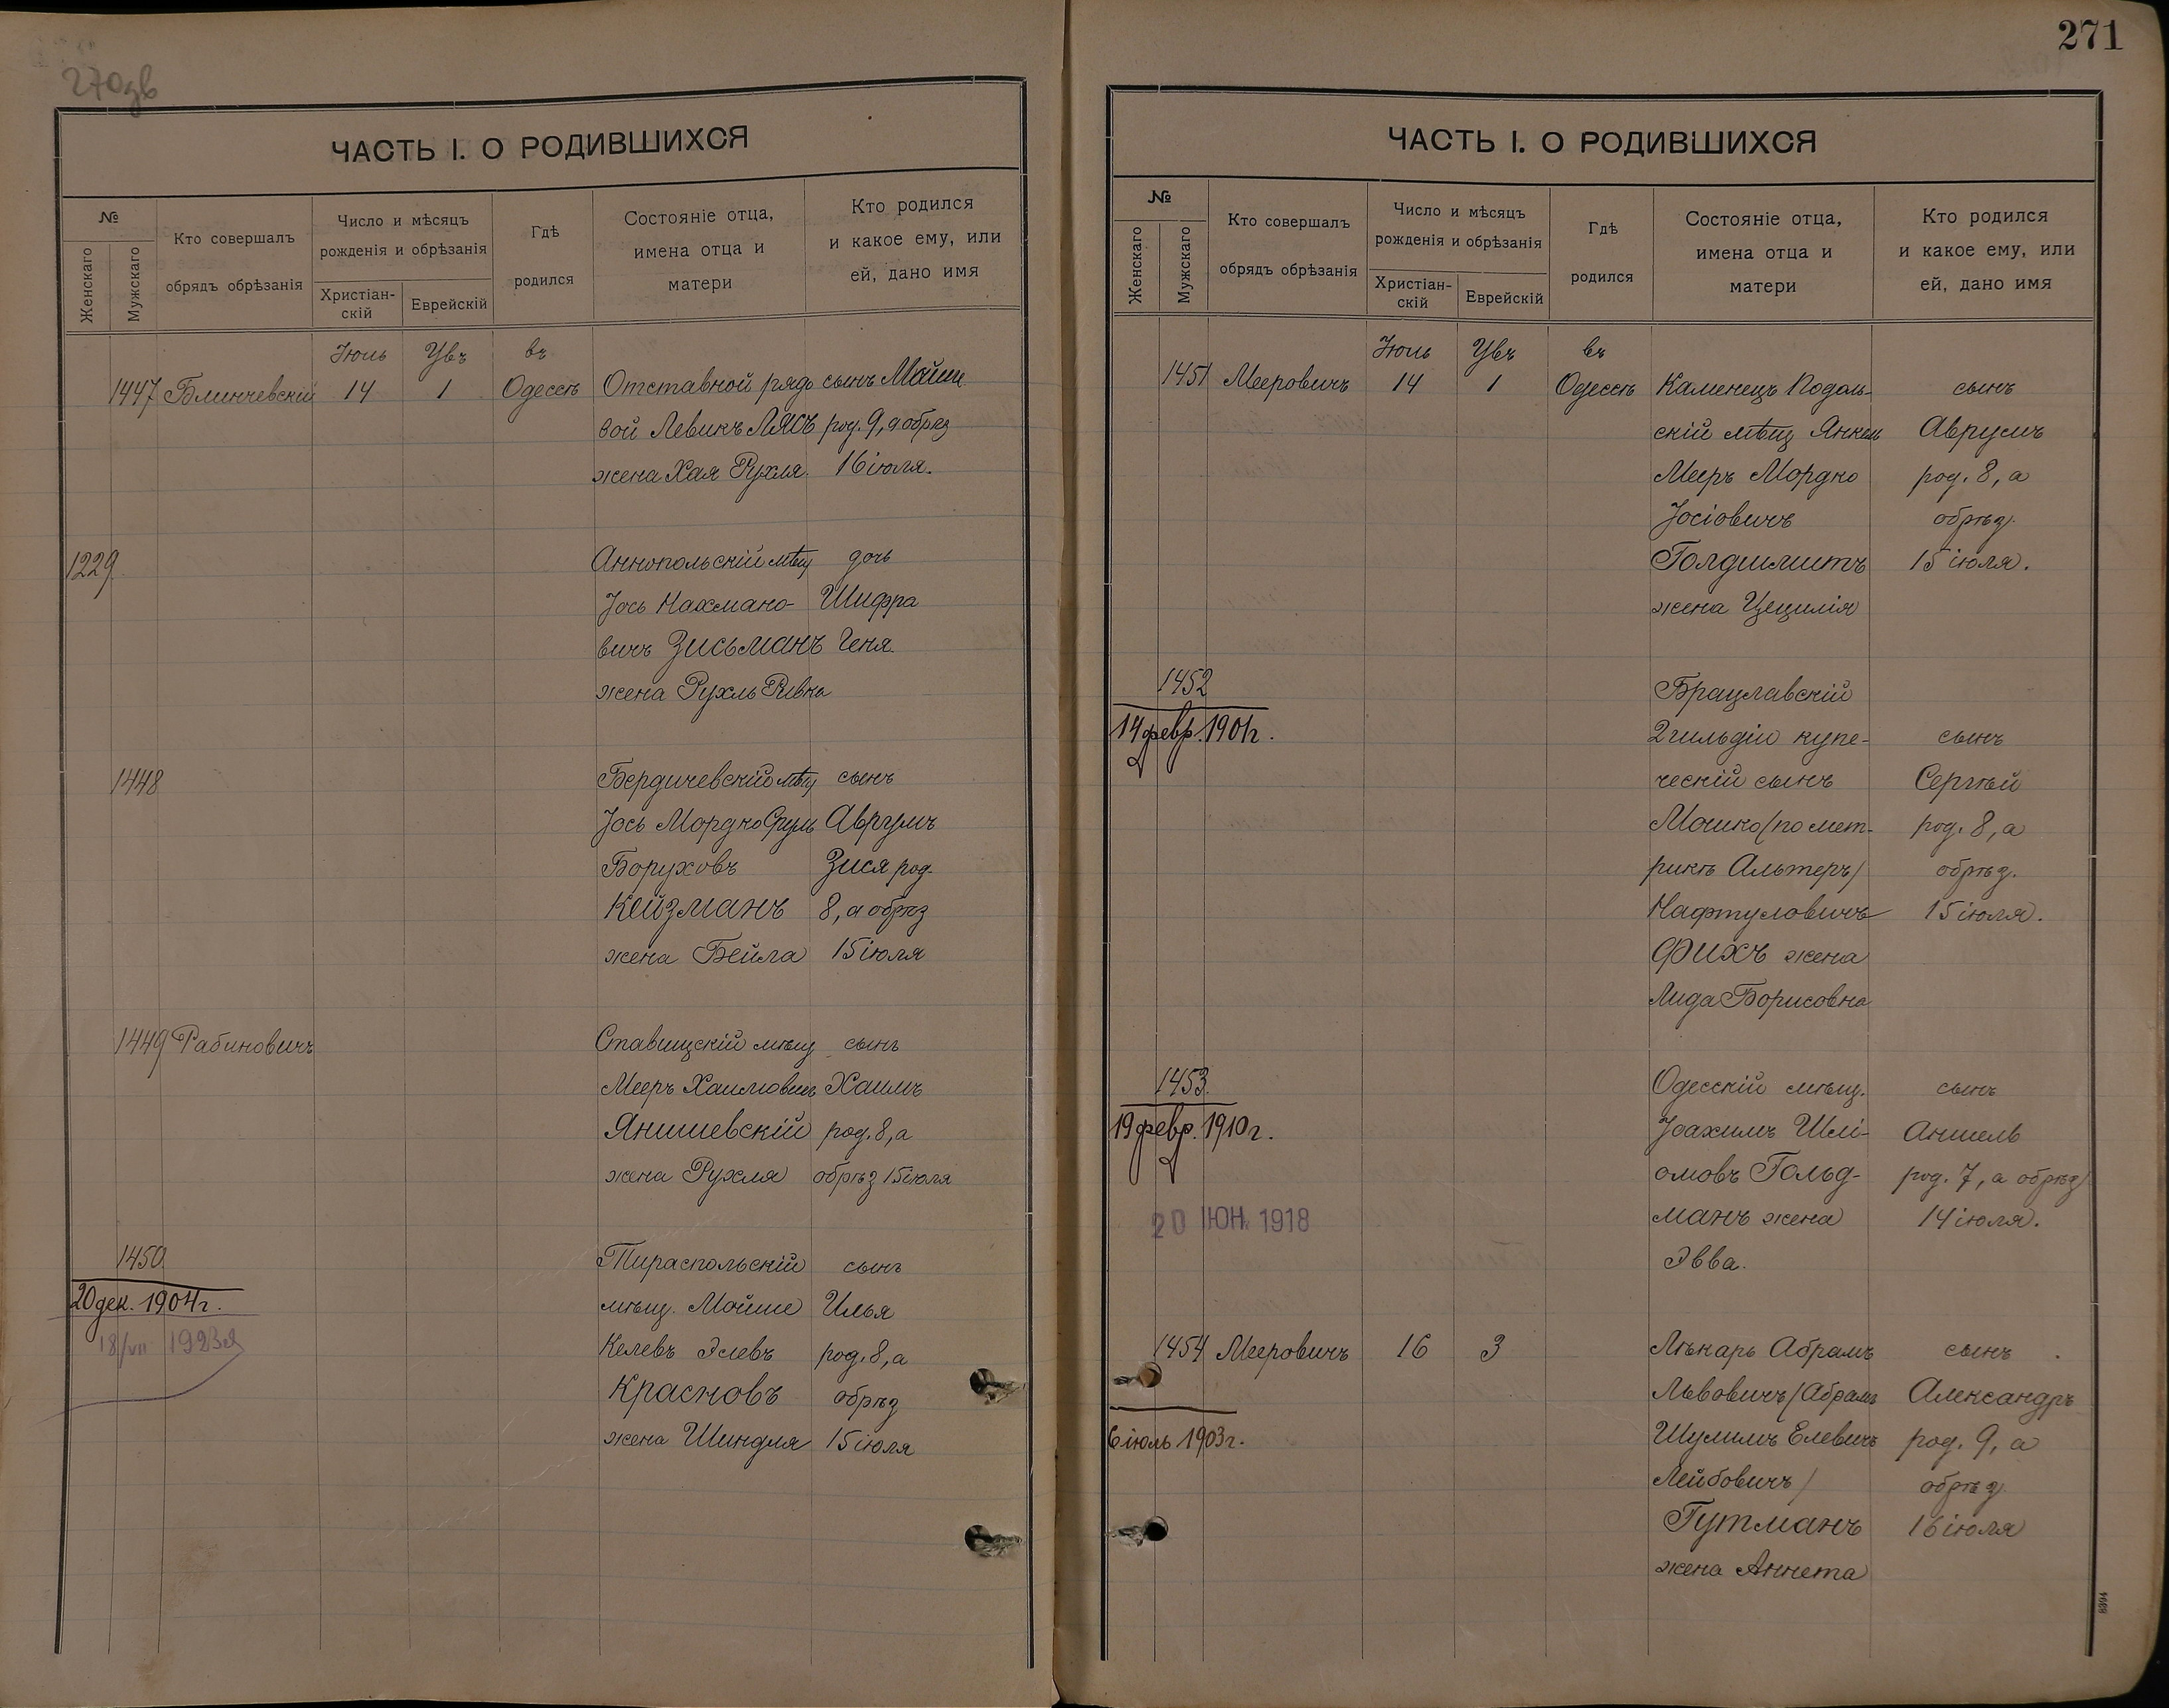 270дв
ЧАСТЬ I. О РОДИВШИХСЯ
№
Женскаго
Мужскаго
Кто совершалъ
обрядъ обрѣзанія
Число и мѣсяцъ
рожденія и обрѣзанія
Христіан-
скій
Еврейскій
Гдѣ
родился
Состояніе отца,
имена отца и
матери
Кто родился
и какое ему, или
ей, дано имя
въ
1447 Блинчевскій 14 1 Одессѣ Отставной рядо сынъ Мойше
вой Левикъ Лясъ род. 9, а обрѣз
жена Хая Рухля 16 іюля.
1229 Аннопольскій мѣщ дочь
Іось Нахмано- Шифра
вичъ Зисьманъ Геня.
жена Рухль Ривка
1448 Бердичевскій мѣщ сынъ
Іось Мордко Сруль Аврумъ
Боруховъ Зися род.
Кейзманъ 8, а обрѣз
жена Бейла 15 іюля
1449 Рабиновичъ Ставищскій мѣщ сынъ
Мееръ Хаимовичъ Хаимъ
Янишевскій род. 8, а
жена Рухля обрѣз 15 іюля
1450 Тираспольскій сынъ
20 дек. 1904 г. мѣщ. Мойше Илья
18/VII 1923 Келевъ Элевъ род. 8, а
Красновъ обрѣз
жена Шиндля 15 іюля
271
ЧАСТЬ I. О РОДИВШИХСЯ
№
Женскаго
Мужскаго
Кто совершалъ
обрядъ обрѣзанія
Число и мѣсяцъ
рожденія и обрѣзанія
Христіан-
скій
Еврейскій
Гдѣ
родился
Состояніе отца,
имена отца и
матери
Кто родился
и какое ему, или
ей, дано имя
въ
1451 Мееровичъ 14 1 Одессѣ Каменецъ Подоль- сынъ
скій мѣщ Янкель Аврумъ
Мееръ Мордко род. 8, а
Іосіовичъ обрѣз.
Голдшмитъ 15 іюля.
жена Цецилія
1452 Брацлавскій
14 февр. 1901 г. 2 гильдіи купе- сынъ
ческій сынъ Сергѣй
Мошко (по мет- род. 8, а
рикѣ Альтеръ) обрѣз.
Нафтуловичъ 15 іюля.
Фихъ жена
Лида Борисовна
1453. Одесскій мѣщ. сынъ
19 февр. 1910 г. Іоахимъ Шлі- Аншель
омовъ Гольд- род. 7, а обрѣз
20 ІЮН. 1918 манъ жена 14 іюля.
Эвва.
1454 Мееровичъ 16 3 Лѣкарь Абрамъ сынъ
Львовичъ (Абрамъ Александръ
6 іюль 1903 г. Шулимъ Елевичъ род. 9, а
Лейбовичъ) обрѣз
Гутманъ 16 іюля
жена Аннета
8394